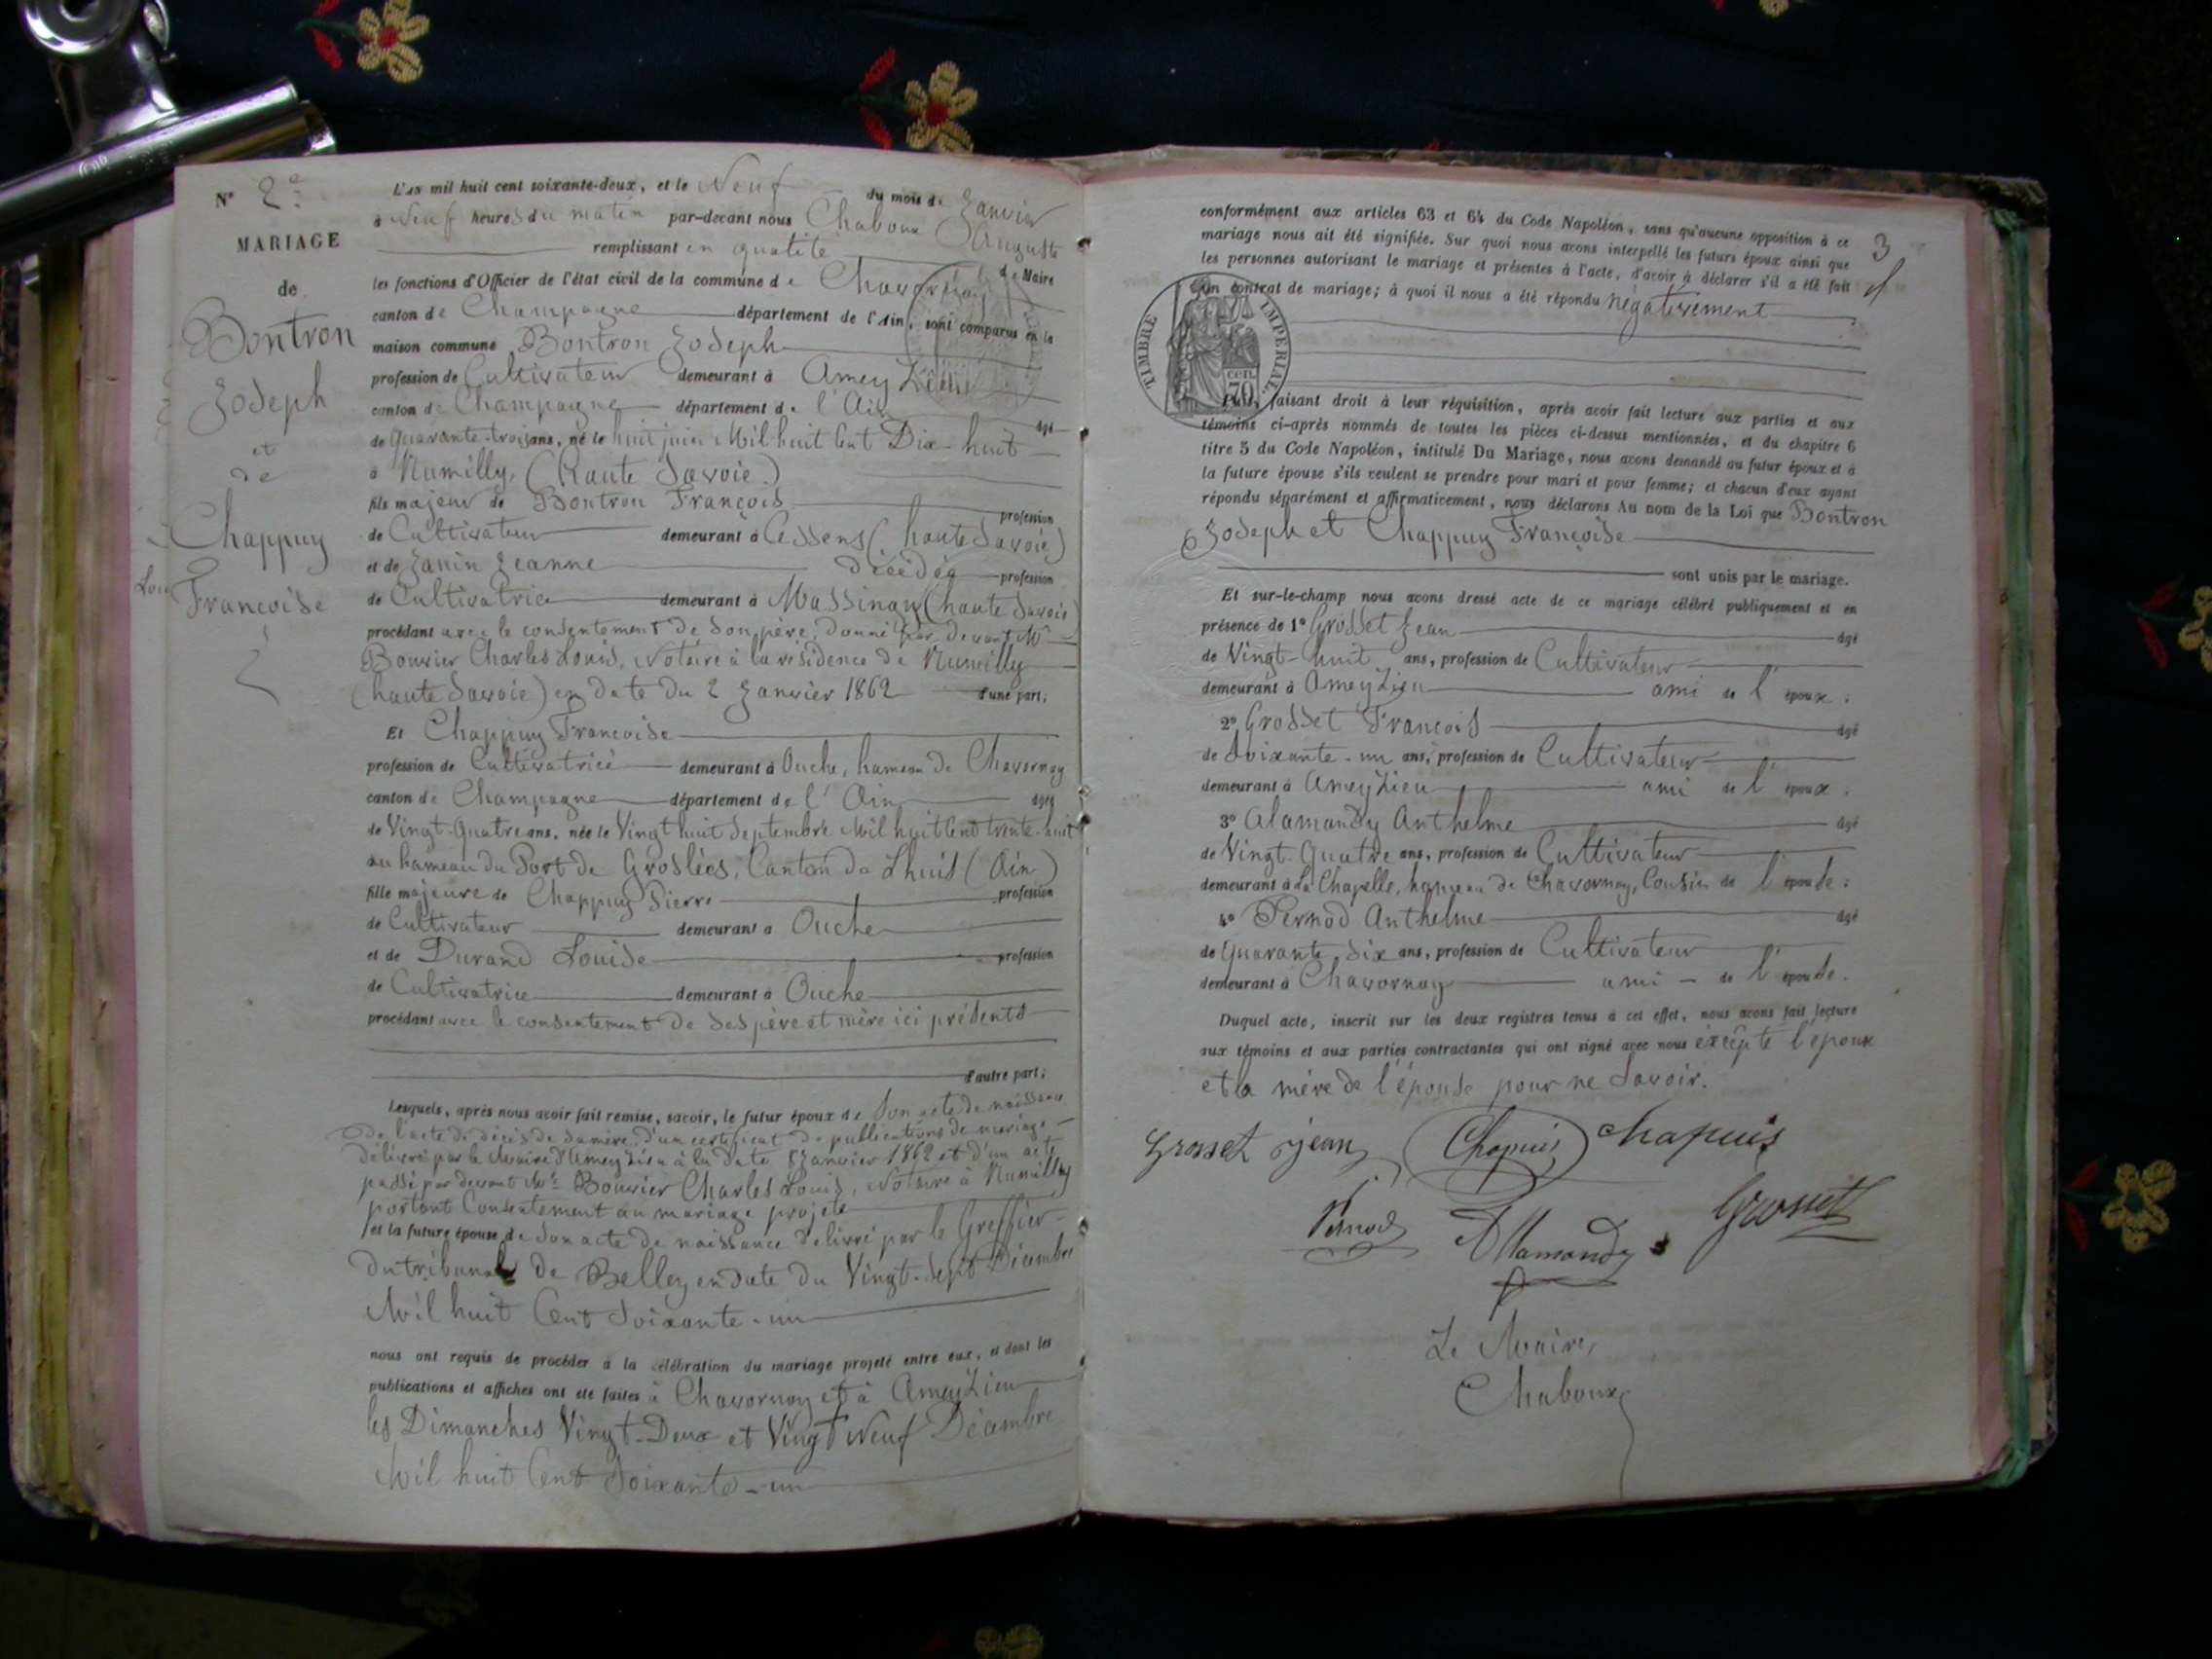 N° 2e
MARIAGE
de
Bontron
Joseph
et
de
Chappuy
Françoise
L'an mil huit cent soixante-deux, et le Neuf du mois de Janvier
à Neuf heures du matin par-devant nous Chaboux Auguste
remplissant en qualité de Maire
les fonctions d'Officier de l'état civil de la commune de Chavornay
canton de Champagne département de l'Ain, sont comparus en la
maison commune Bontron Joseph
profession de Cultivateur demeurant à Ameyzieu
canton de Champagne département de l'Ain âgé
de quarante-trois ans, né le huit juin Mil huit Cent Dix-huit
à Rumilly, (Haute Savoie)
fils majeur de Bontron François profession
de Cultivateur demeurant à Cessens (haute Savoie)
et de Janin Jeanne décédée profession
de Cultivatrice demeurant à Massingy (haute Savoie)
procédant avec le consentement de son père, donné par devant Me
Bouvier Charles Louis, Notaire à la résidence de Rumilly
(haute Savoie) en date du 2 Janvier 1862 d'une part;
Et Chappuy Françoise
profession de Cultivatrice demeurant à Ouche, hameau de Chavornay
canton de Champagne département de l'Ain âgée
de Vingt-Quatre ans, née le Vingt huit Septembre Mil huit Cent trente-huit
au hameau du Port de Groslées, Canton de Lhuis (Ain)
fille majeure de Chappuy Pierre profession
de Cultivateur demeurant à Ouche
et de Durand Louise profession
de Cultivatrice demeurant à Ouche
procédant avec le consentement de ses père et mère ici présents
d'autre part;
Lesquels, après nous avoir fait remise, savoir, le futur époux de Son acte de naissance
de l'acte de décès de sa mère, d'un certificat de publications de mariage
délivré par le Maire d'Ameyzieu à la date 8 Janvier 1862 et d'un acte
passé par devant Me Bouvier Charles Louis, Notaire à Rumilly
portant Consentement au mariage projeté
et la future épouse de Son acte de naissance délivré par le Greffier
du tribunal de Belley en date du Vingt-Sept Décembre
Mil huit Cent Soixante-un
nous ont requis de procéder à la célébration du mariage projeté entre eux, et dont les
publications et affiches ont été faites à Chavornay et à Ameyzieu
les Dimanches Vingt-Deux et Vingt Neuf Décembre
Mil huit Cent Soixante-un
3
conformément aux articles 63 et 64 du Code Napoléon, sans qu'aucune opposition à ce
mariage nous ait été signifiée. Sur quoi nous avons interpellé les futurs époux ainsi que
les personnes autorisant le mariage et présentes à l'acte, d'avoir à déclarer s'il a été fait
un contrat de mariage; à quoi il nous a été répondu négativement
TIMBRE IMPERIAL
cen. 70
Puis, faisant droit à leur réquisition, après avoir fait lecture aux parties et aux
témoins ci-après nommés de toutes les pièces ci-dessus mentionnées, et du chapitre 6
titre 5 du Code Napoléon, intitulé Du Mariage, nous avons demandé au futur époux et à
la future épouse s'ils veulent se prendre pour mari et pour femme; et chacun d'eux ayant
répondu séparément et affirmativement, nous déclarons Au nom de la Loi que Bontron
Joseph et Chappuy Françoise
sont unis par le mariage.
Et sur-le-champ nous avons dressé acte de ce mariage célébré publiquement et en
présence de 1° Grosset Jean âgé
de Vingt-huit ans, profession de Cultivateur
demeurant à Ameyzieu ami de l'époux;
2° Grosset François âgé
de Soixante-un ans, profession de Cultivateur
demeurant à Ameyzieu ami de l'époux.
3° Alamandy Anthelme âgé
de Vingt-Quatre ans, profession de Cultivateur
demeurant à La Chapelle, hameau de Chavornay, Cousin de l'épouse;
4° Pernod Anthelme âgé
de Quarante Six ans, profession de Cultivateur
demeurant à Chavornay ami de l'épouse.
Duquel acte, inscrit sur les deux registres tenus à cet effet, nous avons fait lecture
aux témoins et aux parties contractantes qui ont signé avec nous excepté l'époux
et la mère de l'épouse pour ne Savoir.
grosset jean Chapuis chapuis
Pernod Allamandy Grosset
Le Maire,
Chaboux